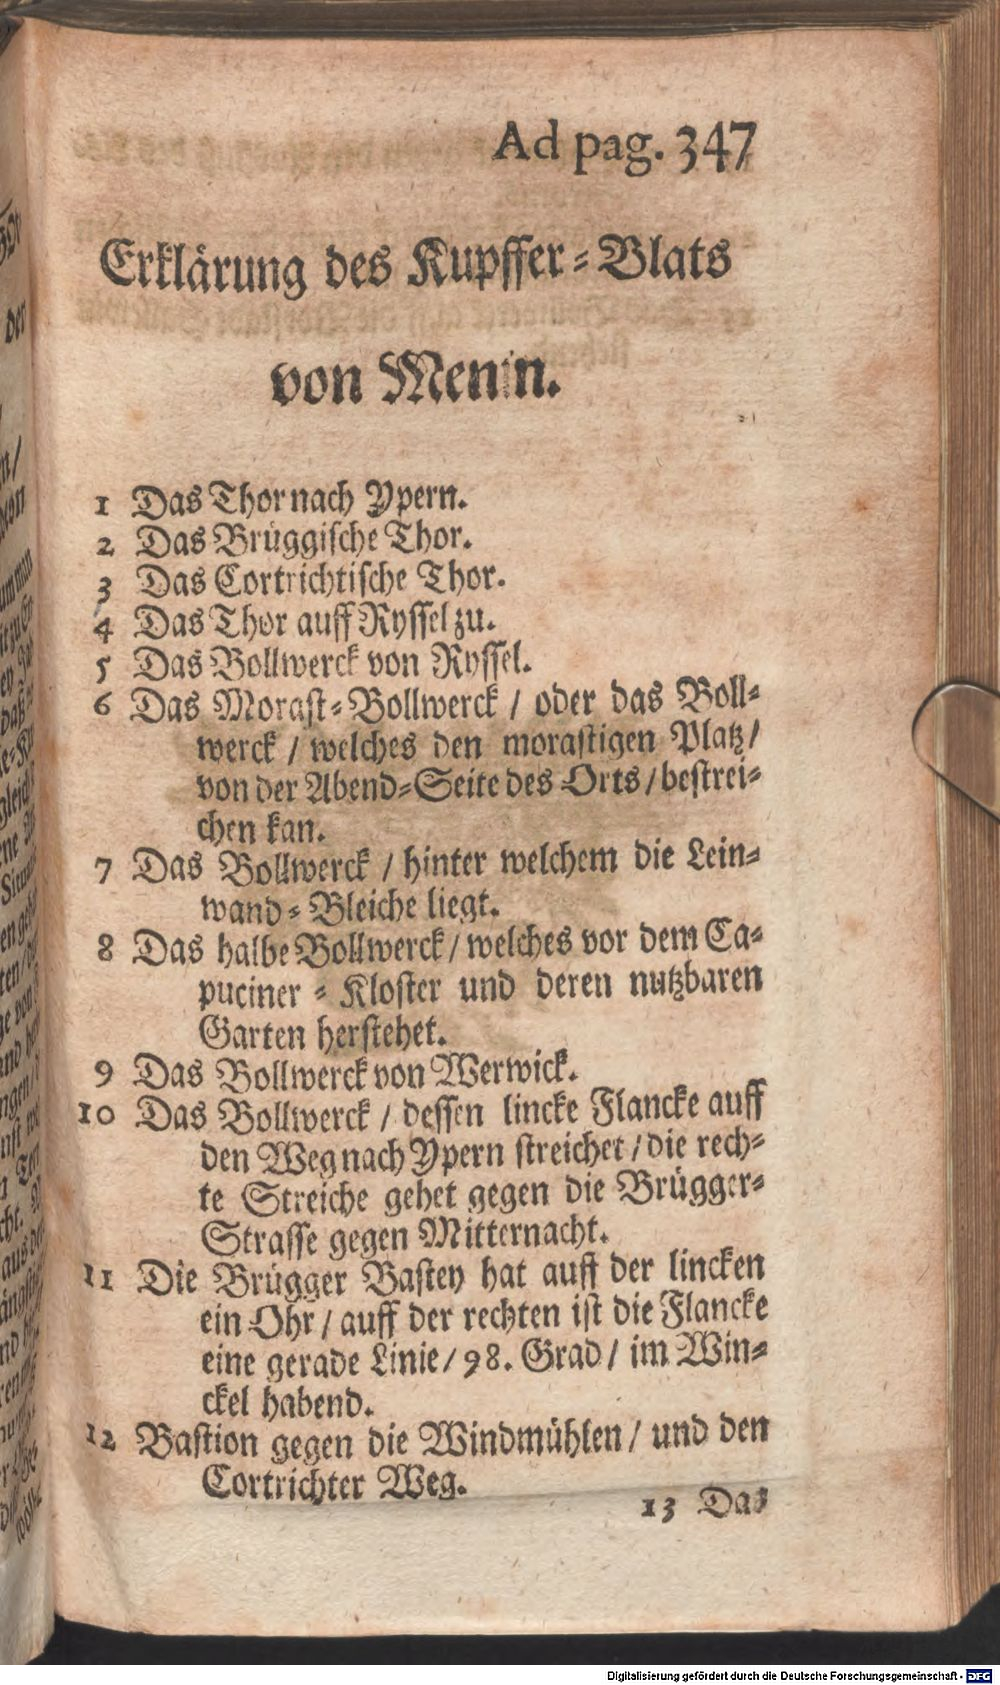 Ad pag. 347
Erklärung des Kupffer-Blats
von Menin.
1 Das Thor nach Ypern.
2 Das Brüggische Thor.
3 Das Cortrichtische Thor.
4 Das Thor auff Ryssel zu.
5 Das Bollwerck von Ryssel.
6 Das Morast-Bollwerck / oder das Boll-
werck / welches den morastigen Platz /
von der Abend-Seite des Orts / bestrei-
chen kan.
7 Das Bollwerck / hinter welchem die Lein-
wand-Bleiche liegt.
8 Das halbe Bollwerck / welches vor dem Ca-
puciner-Kloster und deren nutzbaren
Garten herstehet.
9 Das Bollwerck von Werwick.
10 Das Bollwerck / dessen lincke Flancke auff
den Weg nach Ypern streichet / die rech-
te Streiche gehet gegen die Brügger-
Strasse gegen Mitternacht.
11 Die Brügger Bastey hat auff der lincken
ein Ohr / auff der rechten ist die Flancke
eine gerade Linie / 98. Grad / im Win-
ckel habend.
12 Bastion gegen die Windmühlen / und den
Cortrichter Weg.
13 Das
Digitalisierung gefördert durch die Deutsche Forschungsgemeinschaft - DFG